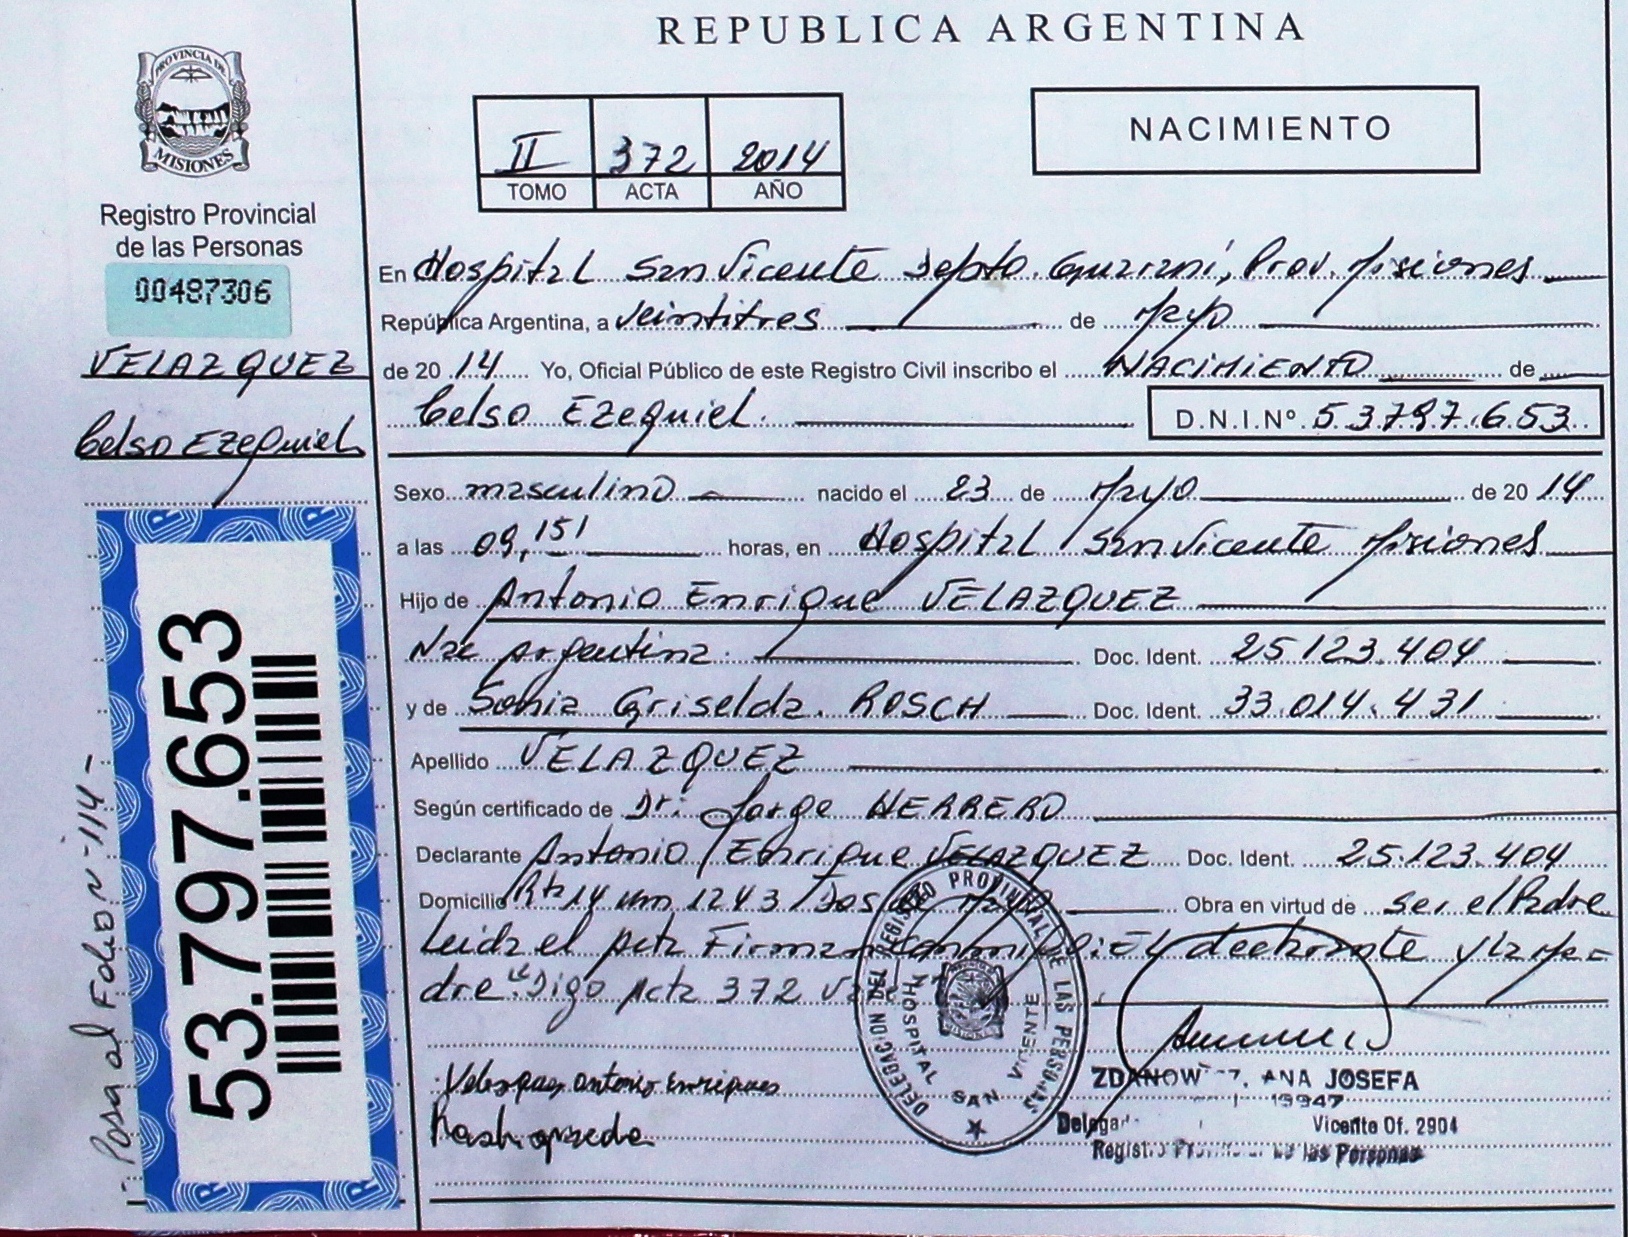 REPUBLICA ARGENTINA
PROVINCIA DE
MISIONES
Registro Provincial
de las Personas
00487306
VELAZQUEZ
Celso Ezequiel
53.797.653
Pasa al Folio N 114 -
II 372 2014
TOMO ACTA AÑO
NACIMIENTO
En Hospital San Vicente Depto. Guarani, Prov. Misiones
República Argentina, a veintitres de Mayo
de 20 14 Yo, Oficial Público de este Registro Civil inscribo el NACIMIENTO de
Celso Ezequiel. D.N.I.Nº 53.797.653
Sexo masculino nacido el 23 de Mayo de 20 14
a las 09,15' horas, en Hospital San Vicente Misiones
Hijo de Antonio Enrique VELAZQUEZ
Nac Argentina. Doc. Ident. 25.123.404
y de Sonia Griselda. ROSCH Doc. Ident. 33.014.431
Apellido VELAZQUEZ
Según certificado de Dr: Jorge HERRERO
Declarante Antonio Enrique VELAZQUEZ Doc. Ident. 25.123.404
Domicilio Rta 14 Km 1243 Dos de Mayo Obra en virtud de ser el Padre
Leida el Acta Firman conmigo: El declarante y la Ma-
dre. "Digo Acta 372 Vale"
DELEGACION DEL REGISTRO PROVINCIAL DE LAS PERSONAS
HOSPITAL SAN VICENTE
Antonio Enrique
ANA JOSEFA
19947
Vicente Of. 2904
de las Personas